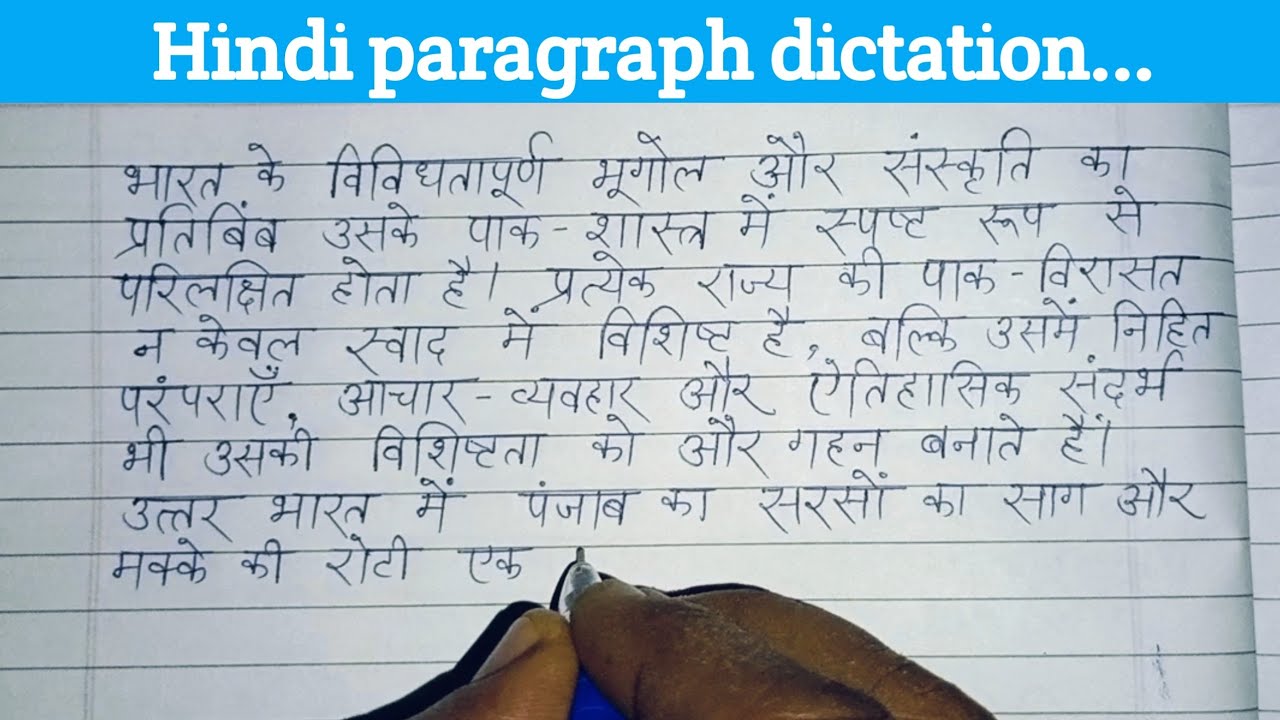 Hindi paragraph dictation...
भारत के विविधतापूर्ण भूगोल और संस्कृति का
प्रतिबिंब उसके पाक-शास्त्र में स्पष्ट रूप से
परिलक्षित होता है। प्रत्येक राज्य की पाक-विरासत
न केवल स्वाद में विशिष्ट है, बल्कि उसमें निहित
परंपराएँ, आचार-व्यवहार और ऐतिहासिक संदर्भ
भी उसकी विशिष्टता को और गहन बनाते हैं।
उत्तर भारत में पंजाब का सरसों का साग और
मक्के की रोटी एक